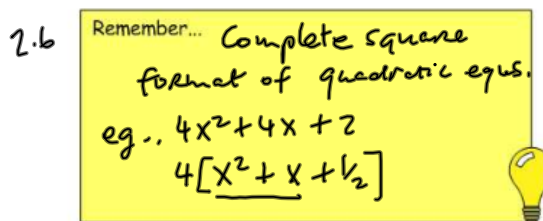 2.6
Remember... Complete square
format of quadratic equs.
eg., 4x²+4x+2
4[x²+x+1/2]